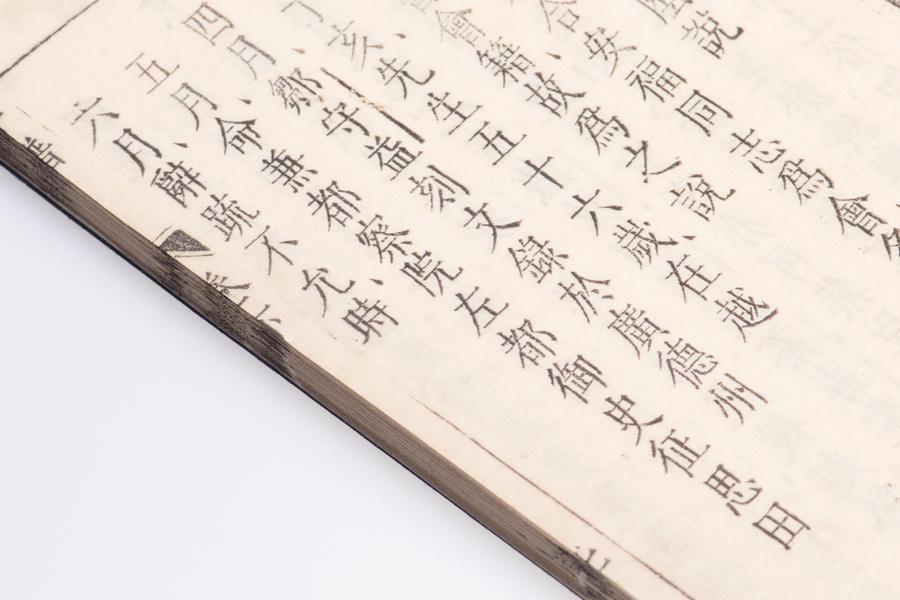 說
合安福同志爲會
會籍、故爲之說、
丁亥、先生五十六歲、在越
四月、鄒守益刻文錄於廣德州
五月、命兼都察院左都御史征思田
六月、辭疏不允、時